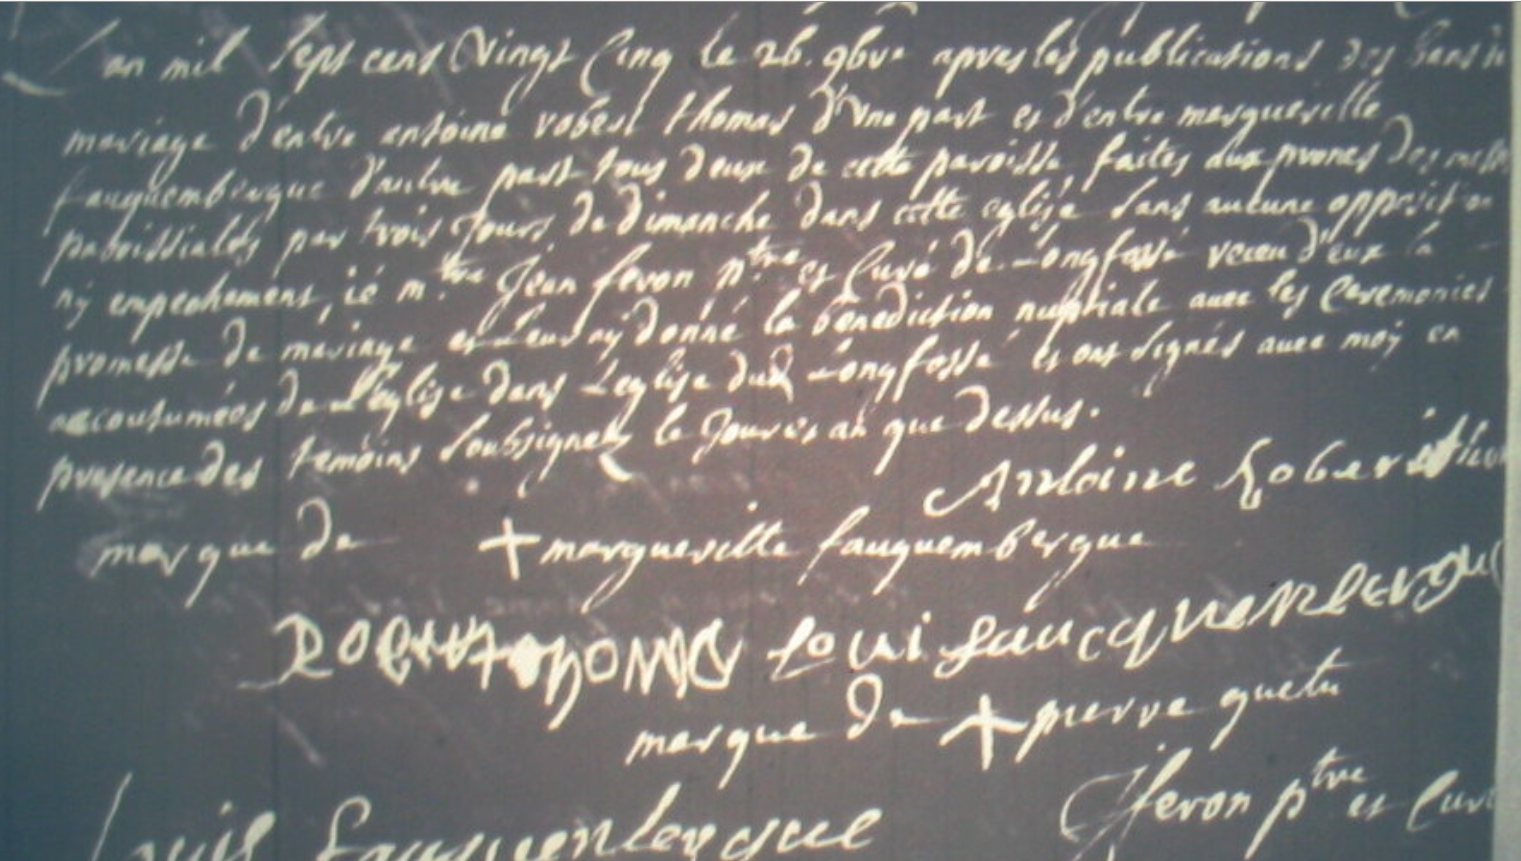 L'an mil sept cens Vingt Cinq le 26. 9bre apres les publications des bans
mariage d'entre antoine robert thomas d'une part et d'entre marguerille
fauquembergue d'autre part tous deux de cette paroisse, faites aux prones des mess
paroissiales par trois Jours de dimanche dans cette eglise sans aucune opposition
ny empechement, ié m.tre Jean feron ptre et Curé de Longfossé receu d'eux la
promesse de mariage et leur ay donné la benediction nuptiale avec les Ceremonies
accoutumées de L'eglise dans L'eglise dud Longfossé et ont signés avec moy en
presence des temoins soubsignez le Jour et an que dessus.
Antoine Robert
marque de + marguerille fauquembergue
Robert thomas Loui faucquenbergue
marque de + pierre quetu
Jferon ptre et Curé
Louis fauquenbergue